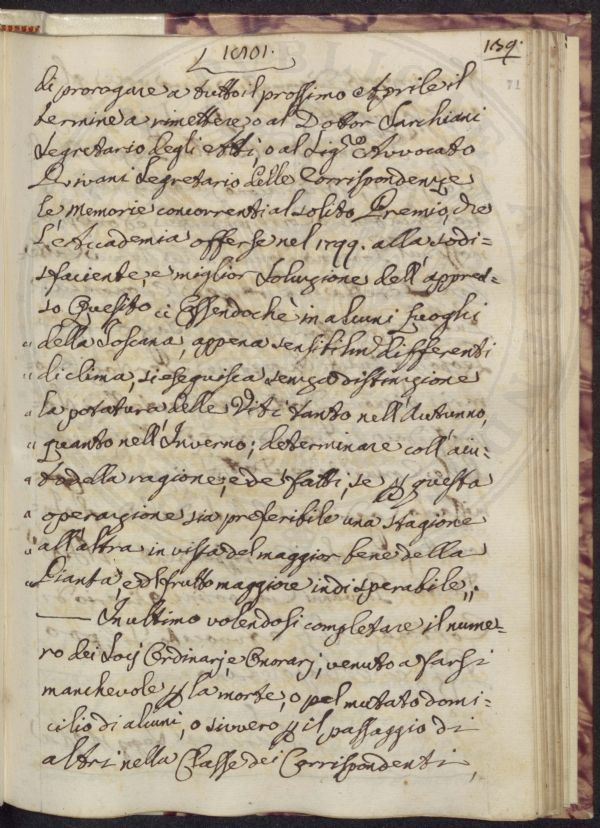 1801.
159.
71
di prorogare a tutto il prossimo Aprile il
termine a rimettere o al Dottor Sarchiani
Segretario degli Atti, o al Sig.re Avvocato
Rivani Segretario delle Corrispondenze
le Memorie concorrenti al solito Premio, che
l'Accademia offerse nel 1799. alla sodi-
sfaciente, e miglior soluzione dell'appres-
so Quesito „ Essendochè in alcuni Luoghi
„ della Toscana, appena sensibilm. differenti
„ di clima, si eseguisca senza distinzione
„ la potatura delle Viti tanto nell'Autunno,
„ quanto nell'Inverno; determinare coll'aiu-
„ to della ragione, e de' fatti, se questa
„ operazione sia preferibile una stagione
„ all'altra in vista del maggior bene della
„ Pianta, e del frutto maggiore indi sperabile „.
— In ultimo volendosi completare il nume-
ro dei Socj Ordinarj, e Onorarj, venuto a farsi
manchevole p la morte, o pel mutato domi-
cilio di alcuni, o sivvero p il passaggio di
altri nella Classe dei Corrispondenti,